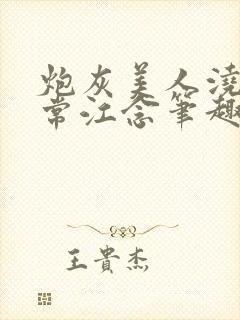 炮灰美人澆
常江念筆趣
王貴杰